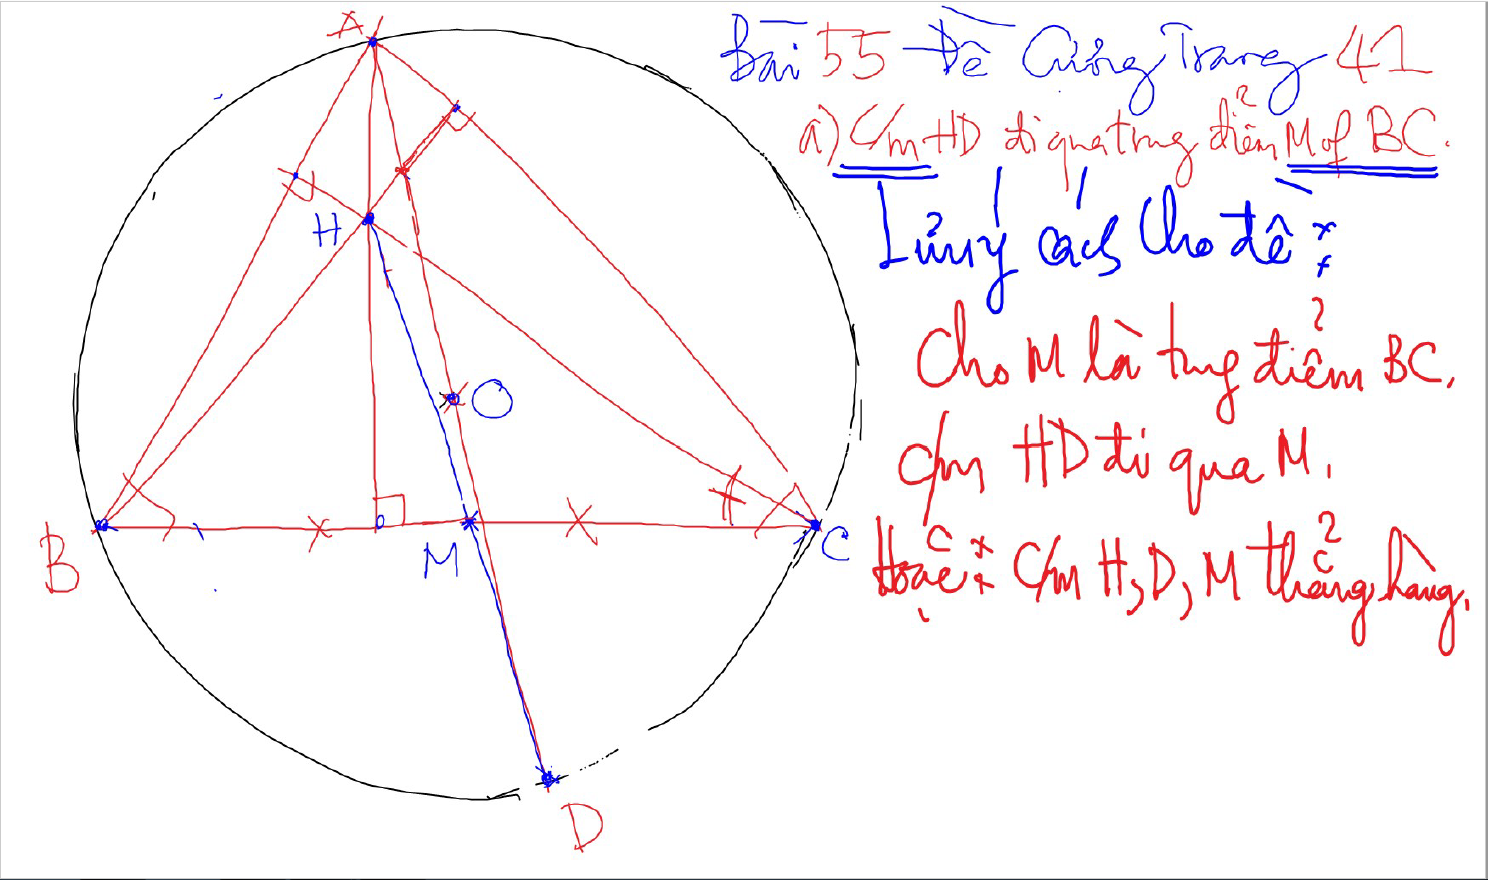 Bài 55 - Đề Cương Trang 41
a) C/m HD đi qua trung điểm M of BC.
Lưu ý cách cho đề:
Cho M là trung điểm BC.
C/m HD đi qua M.
Hoặc: C/m H, D, M thẳng hàng.
A
H
O
B
M
C
D